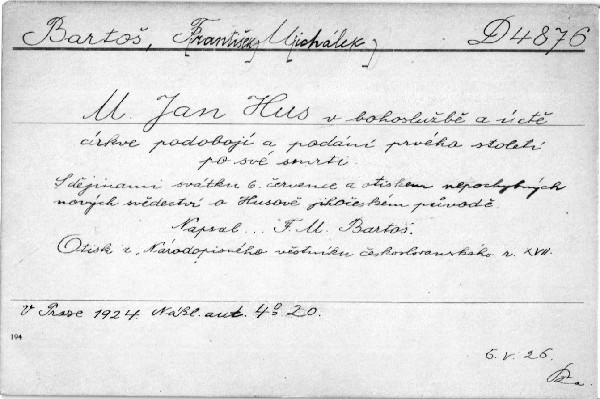 Bartoš, F[rantišek] M[ichálek] D4876
M. Jan Hus v bohoslužbě a úctě
církve podobojí a podání prvého století
po své smrti.
S dějinami svátku 6. července a otiskem nepochybných
nových svědectví o Husově jihočeském původě.
Napsal... F. M. Bartoš.
Otisk z „Národopisného věstníku československého r. XVII.
V Praze 1924. Nákl. aut. 4° 20.
194
5. V. 26.